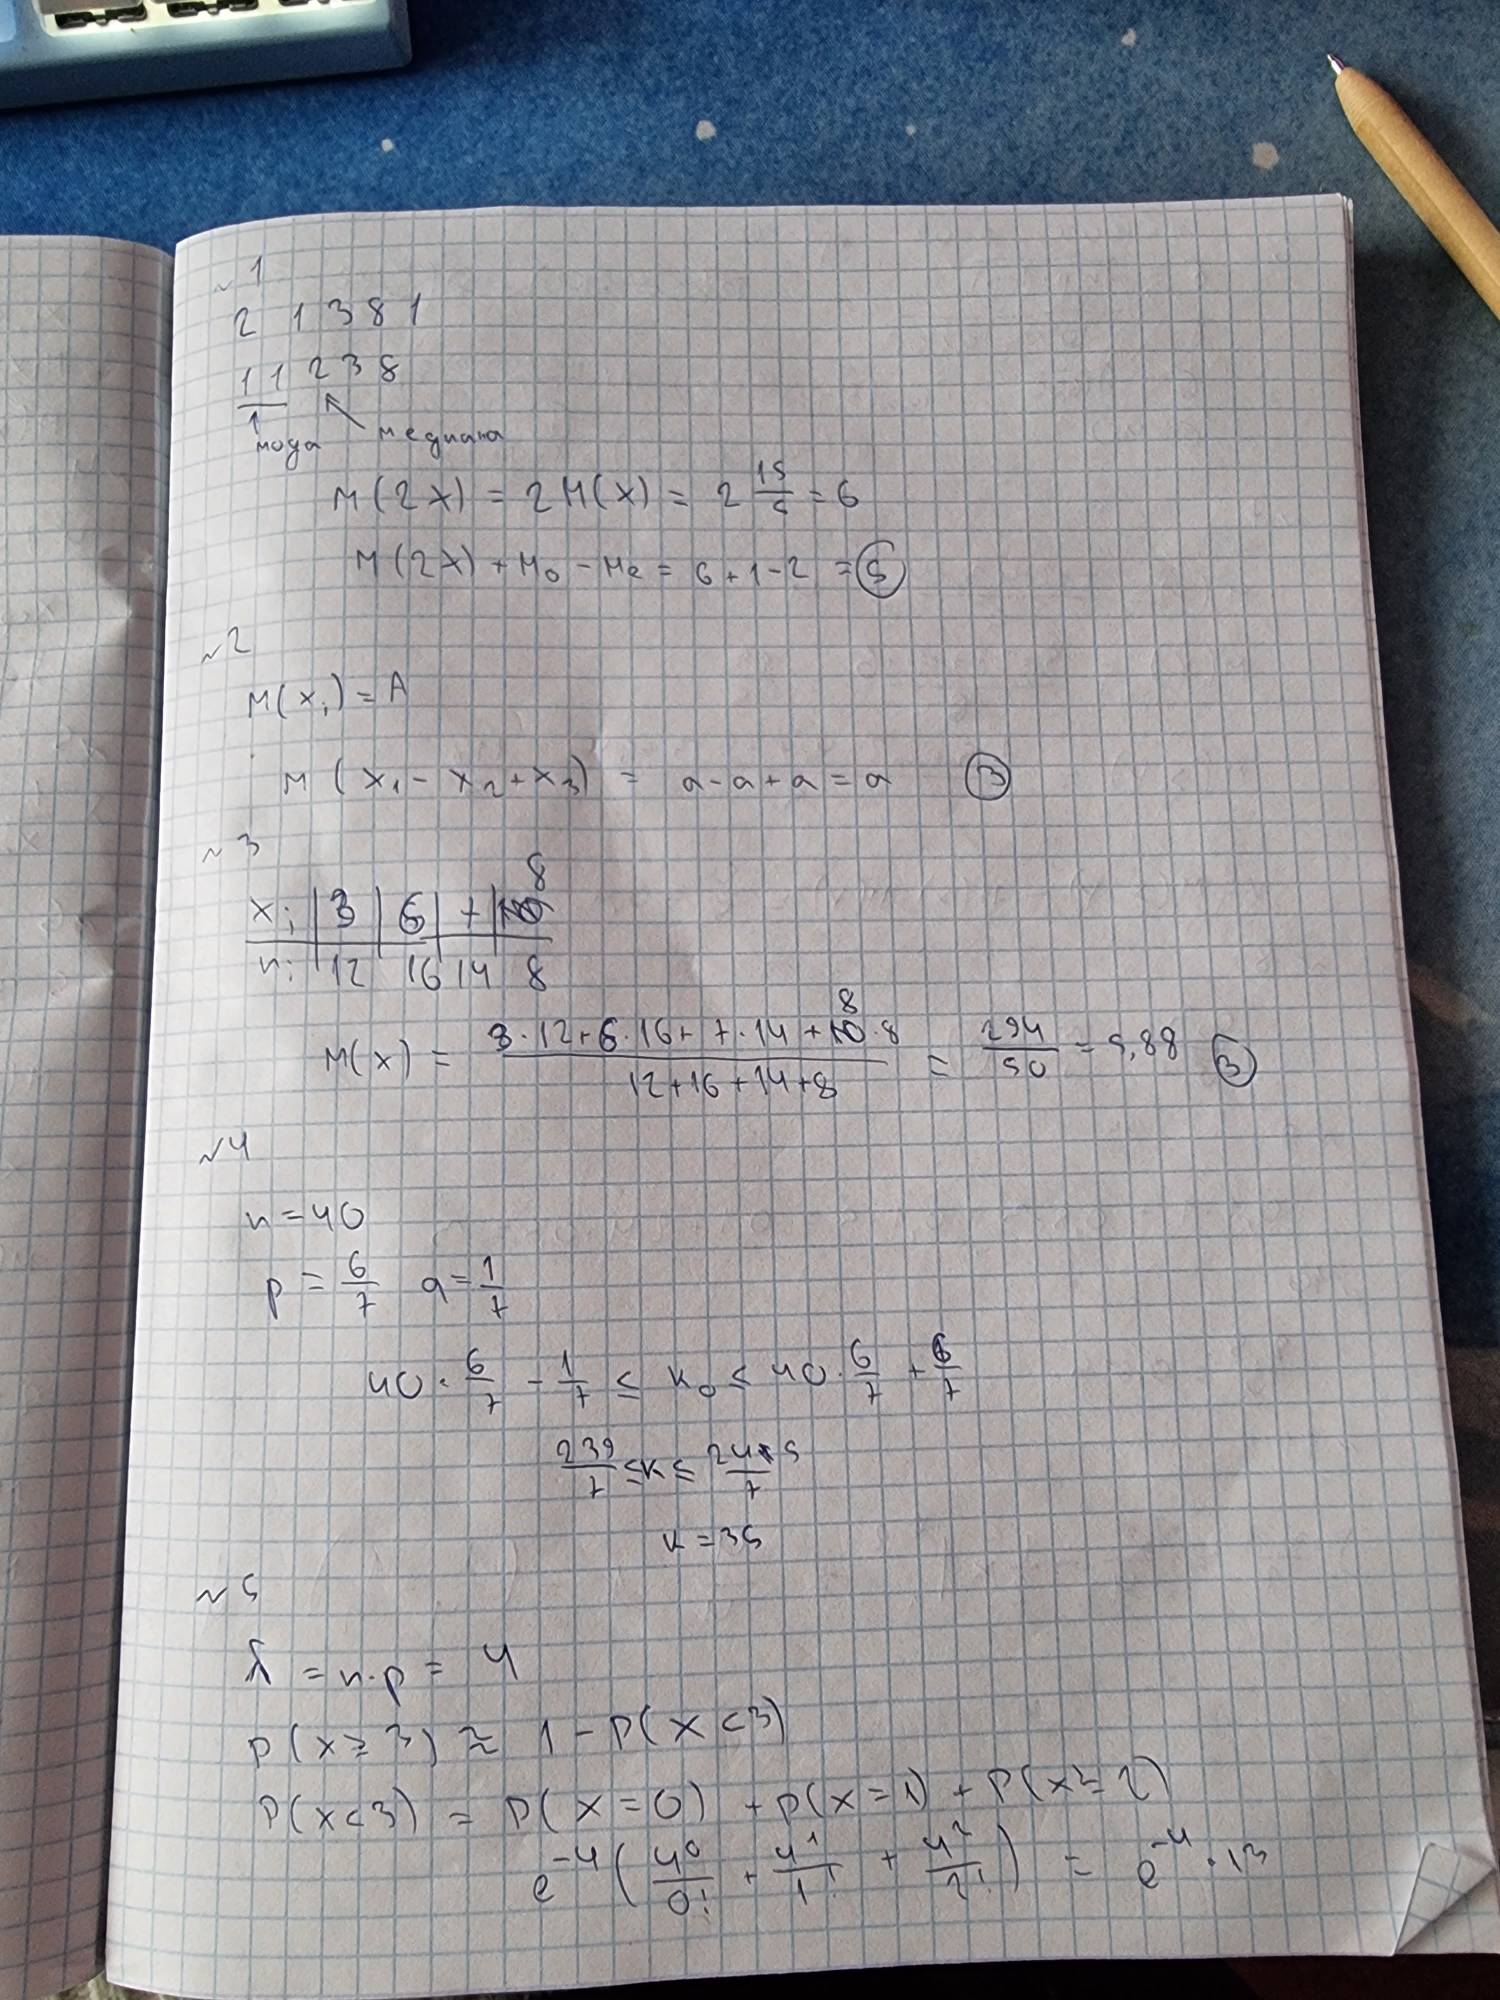 №1
2 1 3 8 1
1 1 2 3 8
мода медиана
M(2X) = 2M(X) = 2 15/5 = 6
M(2X) + Mo - Me = 6 + 1 - 2 = 5
№2
M(xi) = A
M(x1 - x2 + x3) = a - a + a = a 3
№3
8
xi | 3 | 6 | 7 | 10
ni | 12 16 14 8
M(x) = (3·12 + 6·16 + 7·14 + 8·8)/(12+16+14+8) = 294/50 = 5,88 3
№4
n = 40
p = 6/7 q = 1/7
40 · 6/7 - 1/7 ≤ k0 ≤ 40 · 6/7 + 6/7
239/7 ≤ k ≤ 245/7
k = 35
№5
λ = n·p = 4
P(x ≥ 3) ≈ 1 - P(X < 3)
P(x < 3) = P(X = 0) + P(x = 1) + P(x = 2)
e^-4 (4^0/0! + 4^1/1! + 4^2/2!) = e^-4 · 13